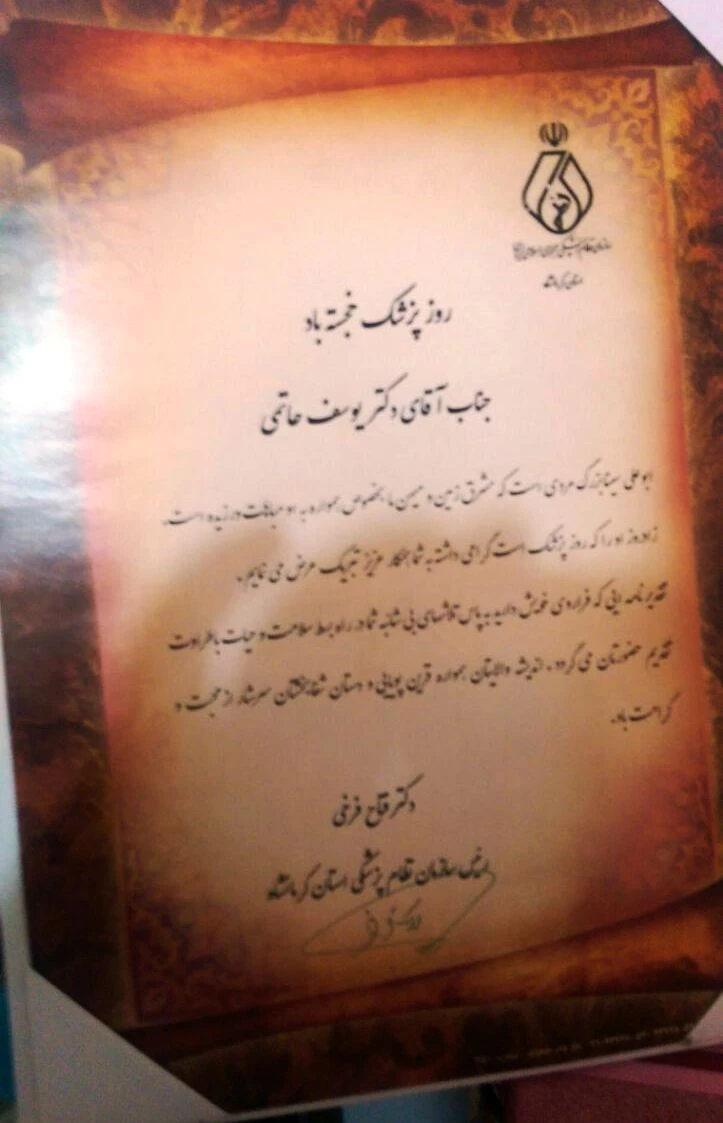 سازمان نظام پزشکی جمهوری اسلامی ایران
استان کرمانشاه
روز پزشک خجسته باد
جناب آقای دکتر یوسف حاتمی
ابو علی سینا بزرگ مردی است که مشرق زمین و میهن ما بخصوص همواره به او مباهات ورزیده است.
زادروز او را که روز پزشک است گرامی داشته به شما همکار عزیز تبریک عرض می نمایم.
تقدیر نامه ایی که فراروی خویش دارید به پاس تلاشهای بی شائبه شما در راه بسط سلامت و حیات با طراوت
تقدیم حضورتان می گردد. اندیشه والایتان همواره قرین پویایی و دستان شفابخشتان سرشار از محبت و
کرامت باد.
دکتر فتاح فرخی
رئیس سازمان نظام پزشکی استان کرمانشاه